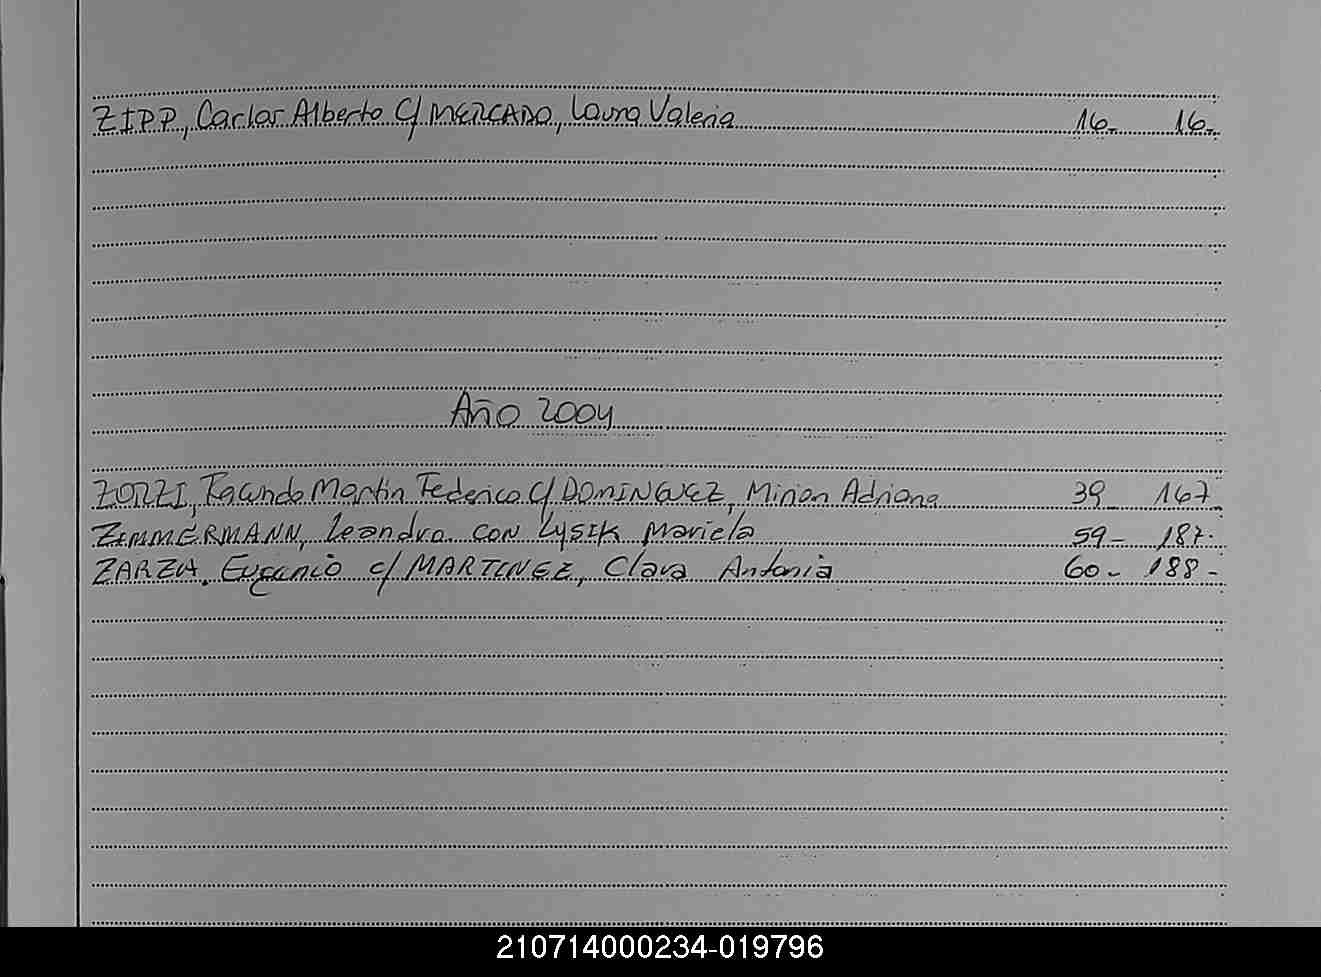 ZIPP, Carlos Alberto C/ MERCADO, Laura Valeria 16- 16-
Año 2004
ZORZI, Facundo Martín Federico C/ DOMINGUEZ, Mirian Adriana 39- 167-
ZIMMERMANN, Leandro CON LYSIK Mariela 59- 187-
ZARZA, Eugenio c/ MARTINEZ, Clara Antonia 60- 188-
210714000234-019796